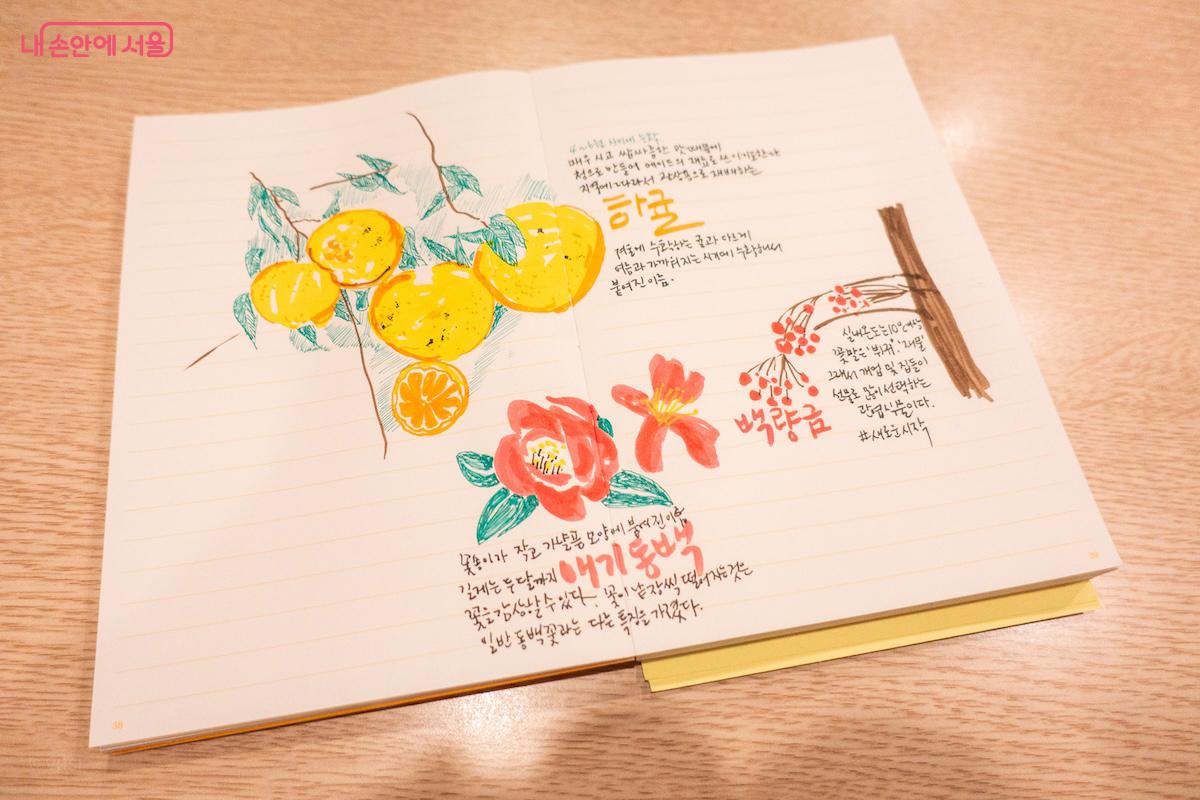 내 손안에 서울
4~6월 사이에 수확
매우 시고 쌉싸름한 맛 때문에
청으로 만들어 에이드의 재료로 쓰이기도한다
지역에 따라서 관상용으로 재배하는
하귤
겨울에 수확하는 귤과 다르게
여름과 가까워지는 시기에 수확해서
붙여진 이름.
실내온도는 10°이상
꽃말은 '부귀', '재물'
그래서 개업 및 집들이
선물로 많이 선택하는
관엽식물이다.
#새로운시작
백량금
꽃송이가 작고 가냘픈 모양에 붙여진 이름
애기동백
길게는 두 달까지
꽃을 감상할 수 있다. 꽃이 낱장씩 떨어지는것은
일반 동백꽃과는 다른 특징을 가졌다.
38
39